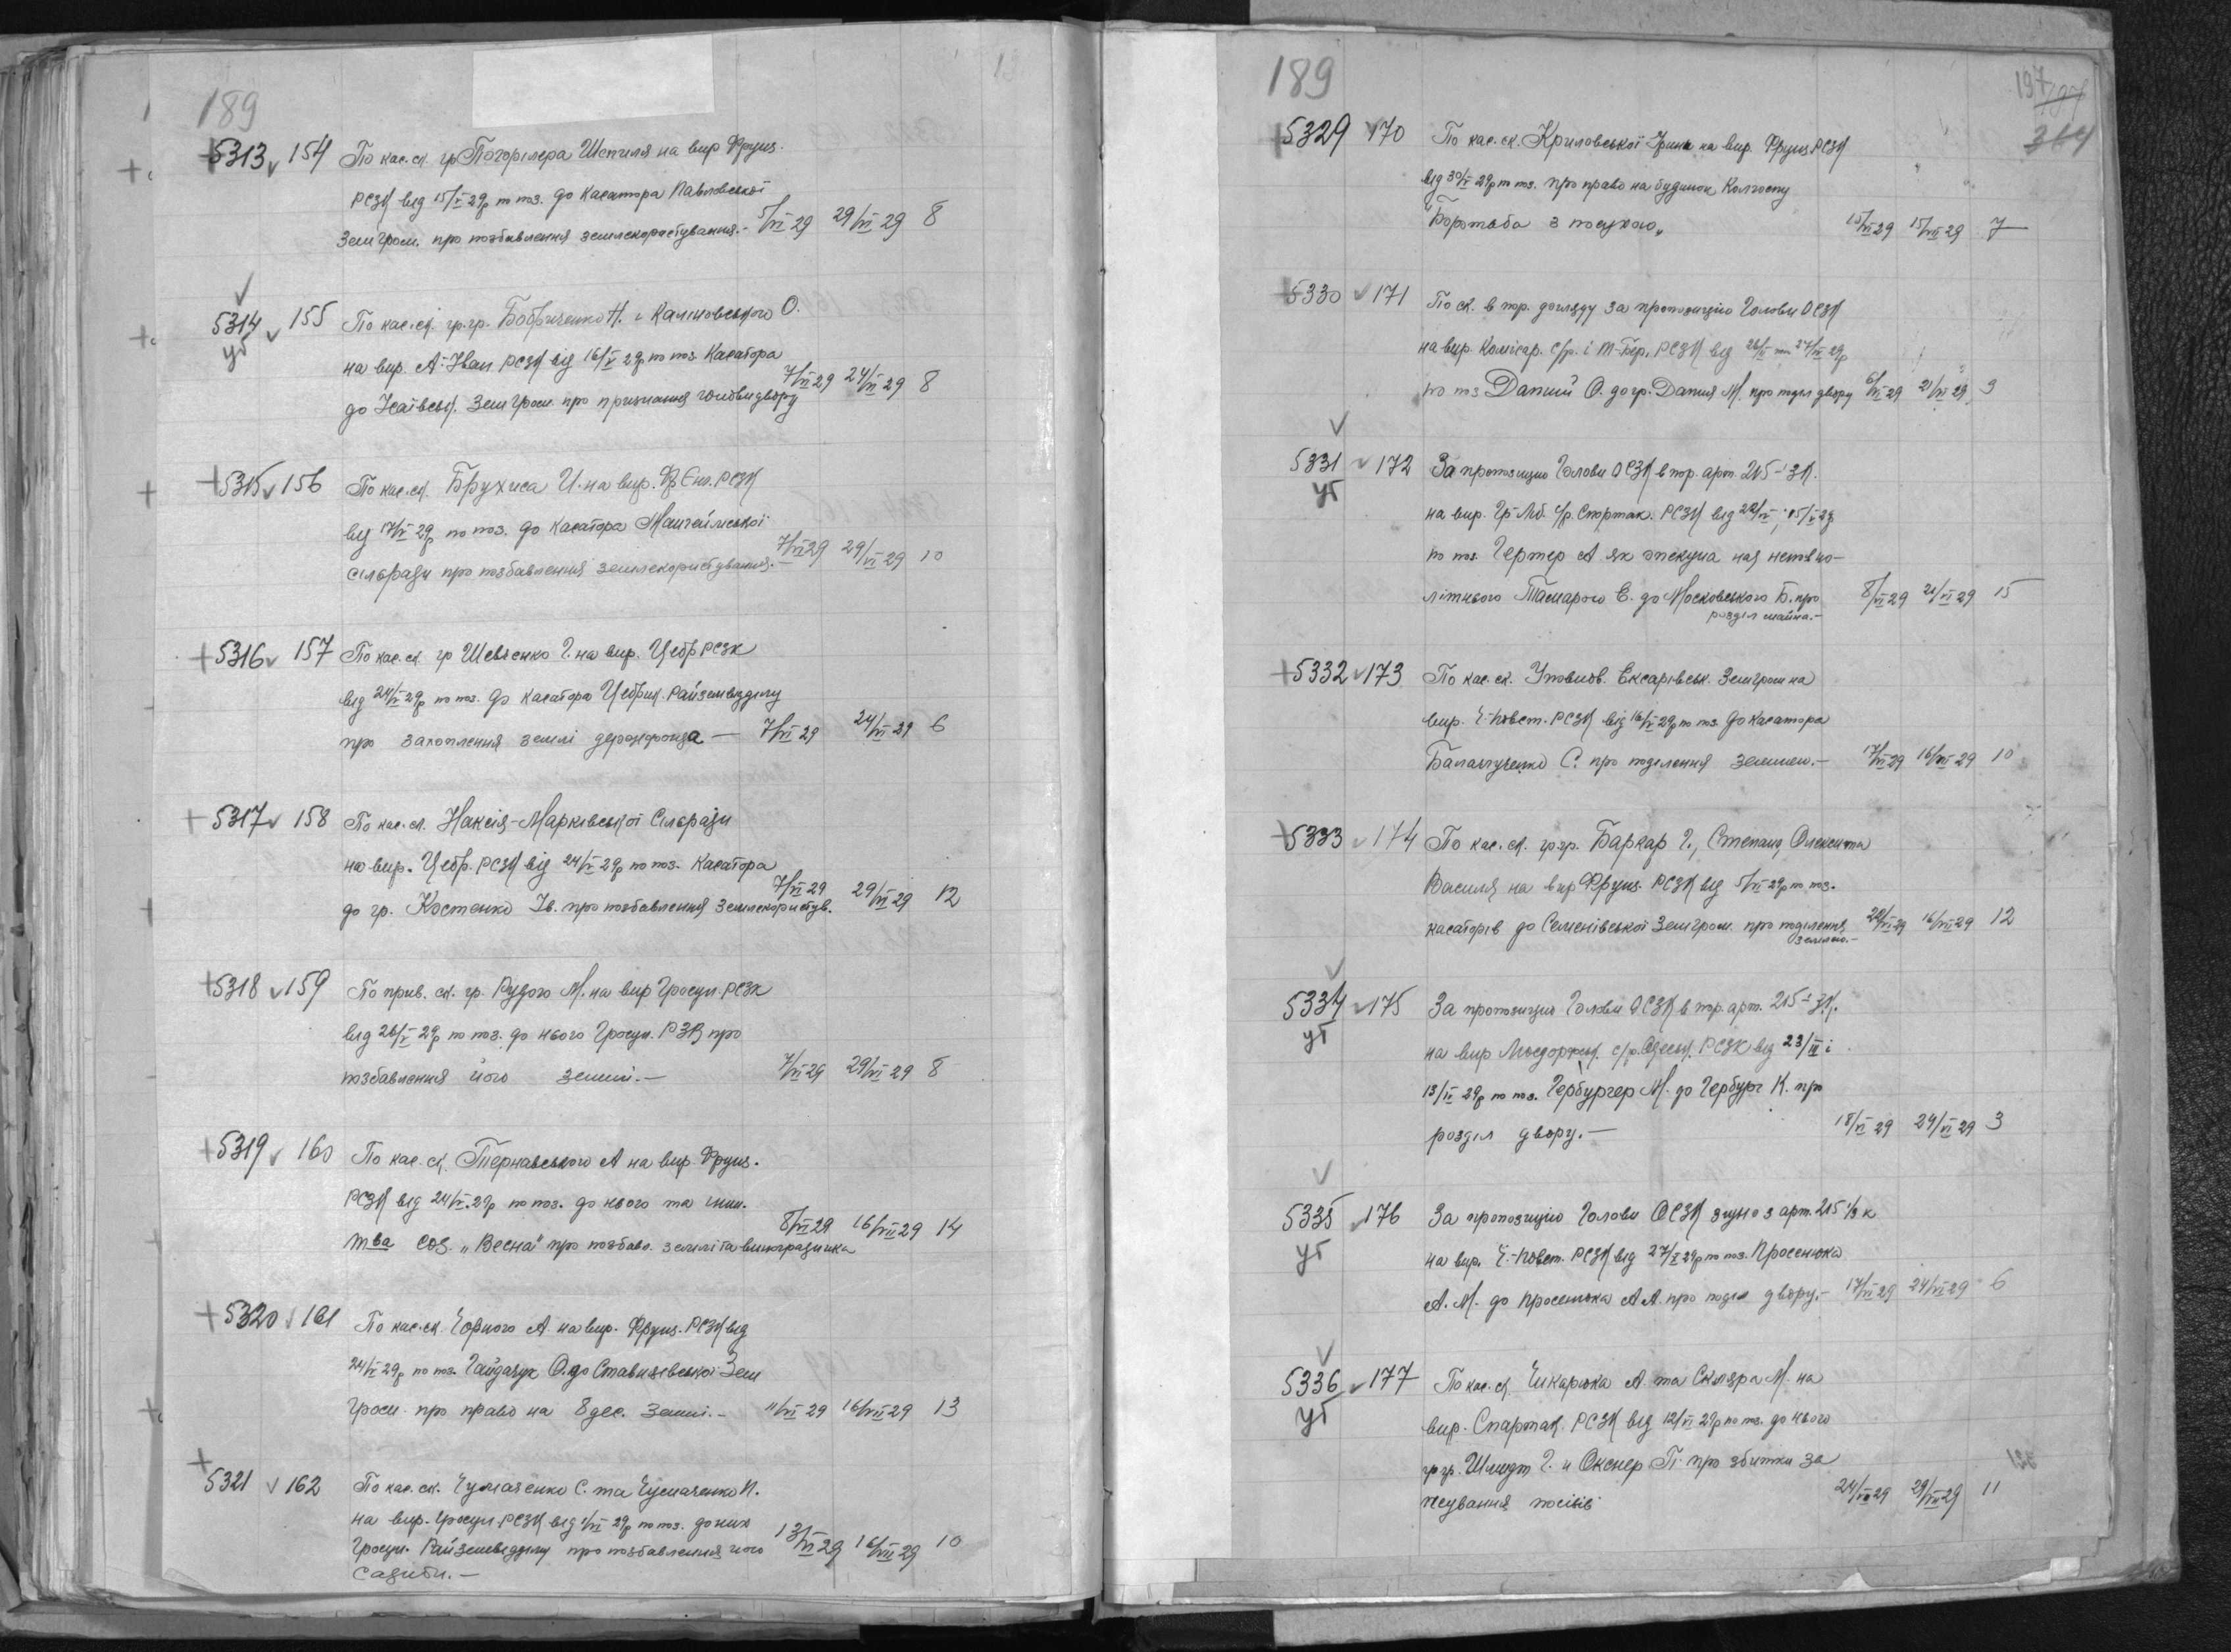 189
5313 154 По кас. ск. гр. Погорілера Шепиля на вир Фрунз.
РСЗК від 15/V 29р по поз. до касатора Павловської
Земгром. про позбавлення землекористування.- 5/VI 29 29/VI 29 8
5314 155 По кас. ск. гр.гр. Бобриченко Н. и Каліновського О.
уг
на вир. А-Іван РСЗК від 16/V 29р по поз. Касатора
до Ісаївськ. Земгром. про признання головидвору 7/VI 29 24/VI 29 8
5315 156 По кас. ск. Брухиса И. на вир. Фр Енг. РСЗК
від 17/V 29р по поз. до касатора Мангеймської
сільради про позбавлення землекористування.- 7/VI 29 29/VI 29 10
5316 157 По кас. ск. гр Шевченко Г. на вир. Цебр РСЗК
від 24/V 29р по поз. до касатора Цебрик. Райземвідділу
про захоплення землі держфонда — 7/VI 29 24/VI 29 6
5317 158 По кас. ск. Максія-Марківської Сільради
на вир. Цебр. РСЗК від 24/V 29р по поз. касатора
до гр. Костенко Ів. про позбавлення землекористув. 7/VI 29 29/VI 29 12
5318 159 По прив. ск. гр. Рудого М. на вир Гросул. РСЗК
від 26/V 29р по поз. до нього Гросул. РЗВ про
позбавлення його землі.— 7/VI 29 29/VI 29 8
5319 160 По кас. ск. Тернавського А на вир. Фрунз.
РСЗК від 24/V.29р по поз. до нього та інш.
тва соз. „Весна" про позбавл. землі та виноградника 8/VI 29 16/VII 29 14
5320 161 По кас. ск. Чорного А. на вир. Фрунз. РСЗК від
24/V 29р по поз. Гайдачук О. до Ставизівської Зем
Гром. про право на 8 дес. землі.- 11/VI 29 16/VII 29 13
5321 162 По кас. ск. Чумаченко С. та Чумаченко П.
на вир. Гросул. РСЗК від 1/VI 29р по поз. до них
Гросул. Райземвідділу про позбавлення його 13/VI 29 16/VII 29 10
садиби.—
189
197
364
5329 170 По кас. ск. Криловської Ірини на вир. Фрунз РСЗК
від 30/V 29р по поз. про право на будинок Колгоспу
"Боротьба з посухою„ 15/VI 29 15/VII 29 7
5330 171 По ск. в пор. догляду за пропозицію Голови ОСЗК
на вир. Комісар. с/р. і Т-Бер. РСЗК від 26/ та 27/ 29р
по поз Дапий О. до гр. Дапия М. про поділ двору 6/VI 29 21/VI 29 9
5331 172 За пропозицию Голови ОСЗК в пор. арт. 215-ЗК.
уг
на вир. Гр-Лб. с/р. Спартак. РСЗК від і 15/V 29
по поз. Гертер А як опекуна над неповно-
літнього Е. до Московського Б. про 8/VI 29 21/VI 29 15
розділ майна.-
5332 173 По кас. ск. Уповнов. Ексарівськ. Земгром на
вир. Ч-Повст. РСЗК від 16/V 29р по поз. до касатора
С. про поділення землею.- 17/VI 29 16/VII 29 10
5333 174 По кас. ск. гр.гр. Баркар Г., Степана, Олекси та
Василя на вир Фрунз. РСЗК від 5/VI 29р по поз.
касаторів до Семенівської Земгром. про поділення 16/VII 29 12
землею.-
5334 175 За пропозицию Голови ОСЗК в пор. арт. 215-ЗК.
уг
на вир с/р. Одеськ. РСЗК від 23/III і
13/IV 29р по поз. Гербургер М. до Гербург К. про
розділ двору.— 18/VI 29 24/VI 29 3
5335 176 За пропозицию Голови ОСЗК згідно з арт. 215 ЗК
уг
на вир. Ч.-Повст. РСЗК від 27/V 29р по поз. Просенюка
А. М. до Просенюка А А. про поділ двору.- 17/VI 29 24/VI 29 6
5336 177 По кас. ск. Чикарюка А. та Скляра М. на
уг
вир. Спартак. РСЗК від 12/VI 29р по поз. до нього
гр гр. Шмидт Г. и Окснер Г про збитки за
псування посівів 24/VII 29 29/VII 29 11